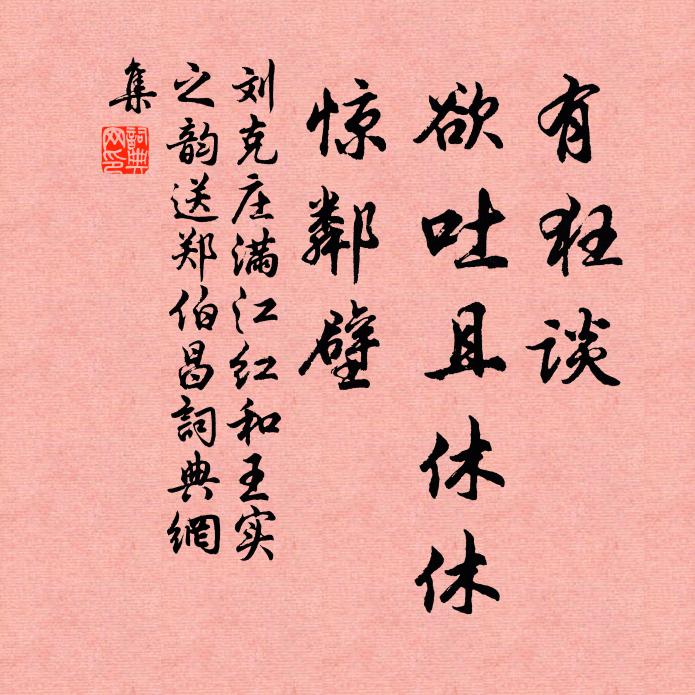 有狂谈
欲吐且休休
惊鄰壁
刘克庄满江红和王实
之韵送郑伯昌詞典網
集
詞典
网印